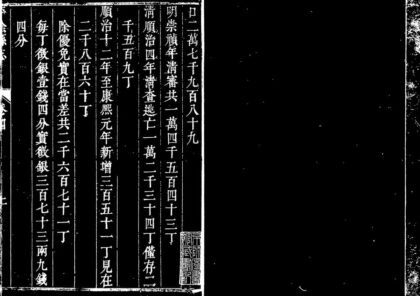 口二萬七千九百八十九
明崇禎年清審共一萬四千五百四十三丁
清順治四年清查逃亡一萬二千三十四丁僅存二
千五百九丁
順治十二年至康熙元年新增三百五十一丁見在
二千八百六十丁
除優免實在當差共二千六百七十一丁
每丁徵銀壹錢四分實徵銀三百七十三兩九錢
四分